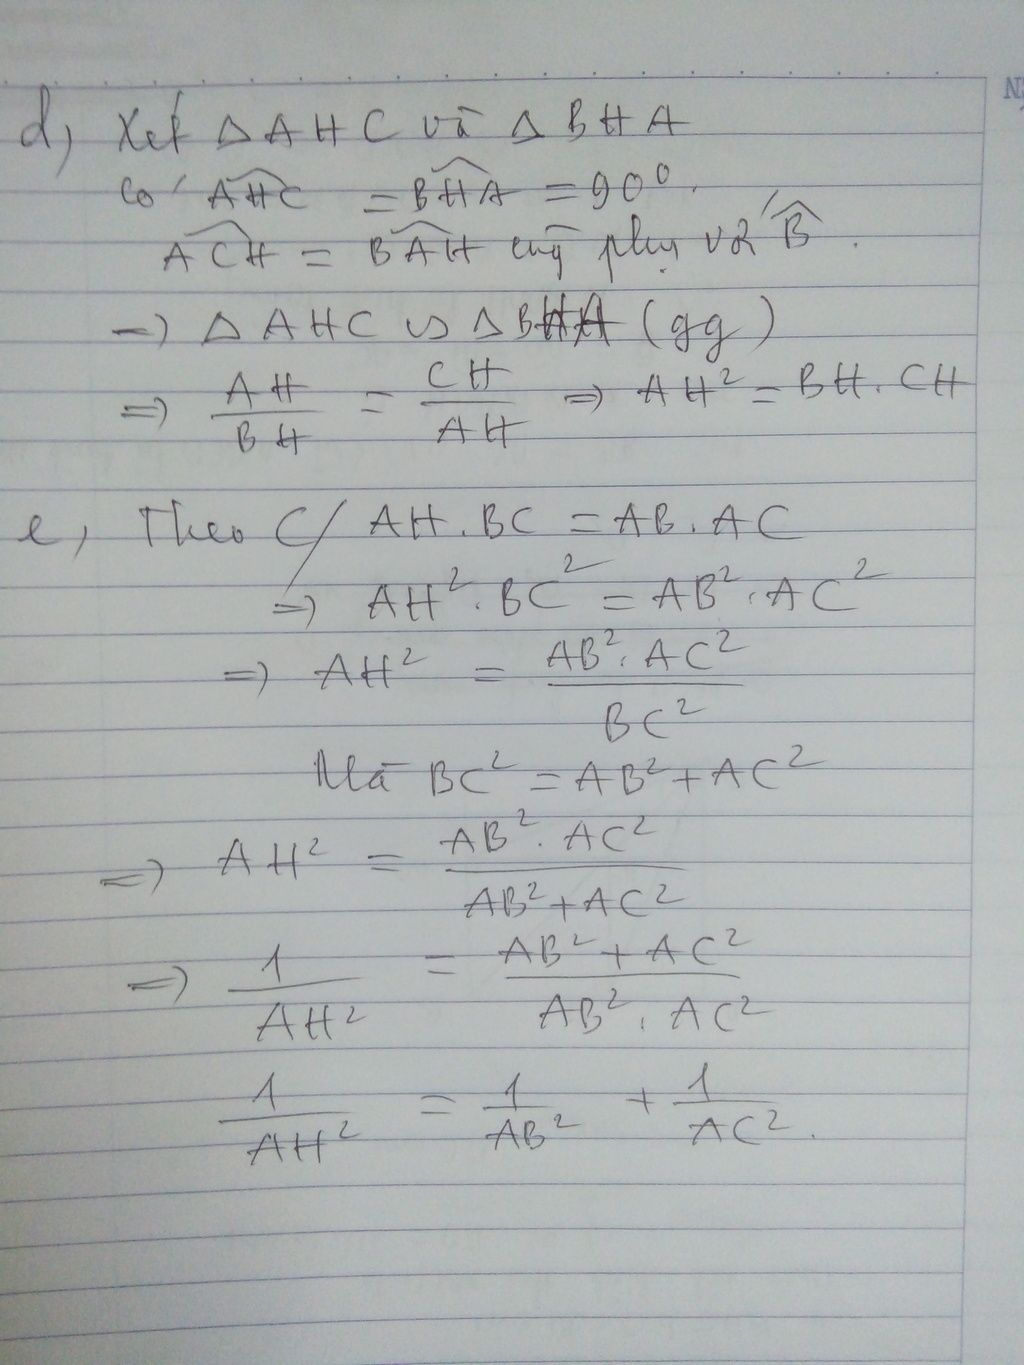 d, Xét Δ AHC và Δ BHA
Có AHC = BHA = 90°.
ACH = BAH cùg phụ với B.
=> Δ AHC ᔕ Δ BHA (gg)
=> AH/BH = CH/AH => AH² = BH.CH
e, Theo C/ AH.BC = AB.AC
=> AH².BC² = AB².AC²
=> AH² = AB².AC²/BC²
Mà BC² = AB²+AC²
=> AH² = AB².AC²/AB²+AC²
=> 1/AH² = AB²+AC²/AB².AC²
1/AH² = 1/AB² + 1/AC².